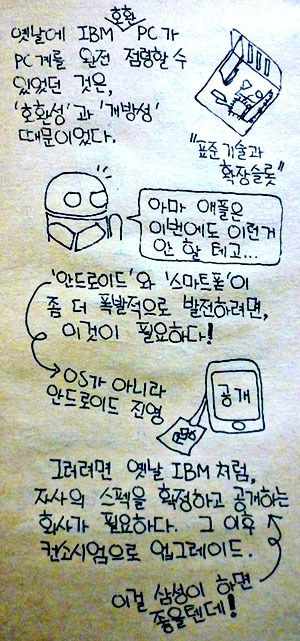 호환
옛날에 IBM PC가
PC계를 완전 점령할 수
있었던 것은,
'호환성'과 '개방성'
때문이었다.
"표준기술과
확장슬롯"
아마 애플은
이번에도 이런거
안 할 테고...
'안드로이드'와 '스마트폰'이
좀 더 폭발적으로 발전하려면,
이것이 필요하다!
OS가 아니라
안드로이드 진영
공개
그러려면 옛날 IBM처럼,
자사의 스펙을 확정하고 공개하는
회사가 필요하다. 그 이후
컨소시엄으로 업그레이드.
이걸 삼성이 하면
좋을텐데!